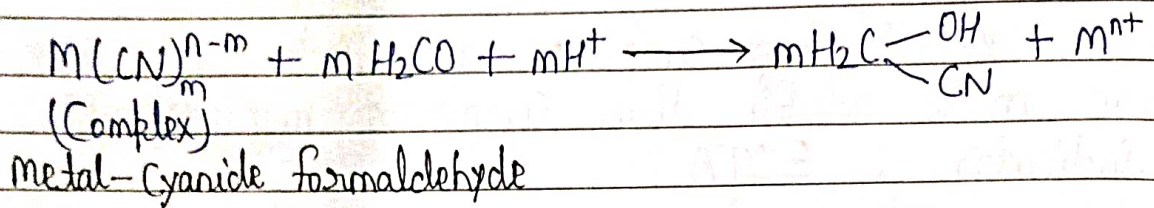 M(CN)ₘⁿ⁻ᵐ + m H₂CO + mH⁺ ⟶ mH₂C OH CN + Mⁿ⁺
(Complex)
metal-Cyanide formaldehyde